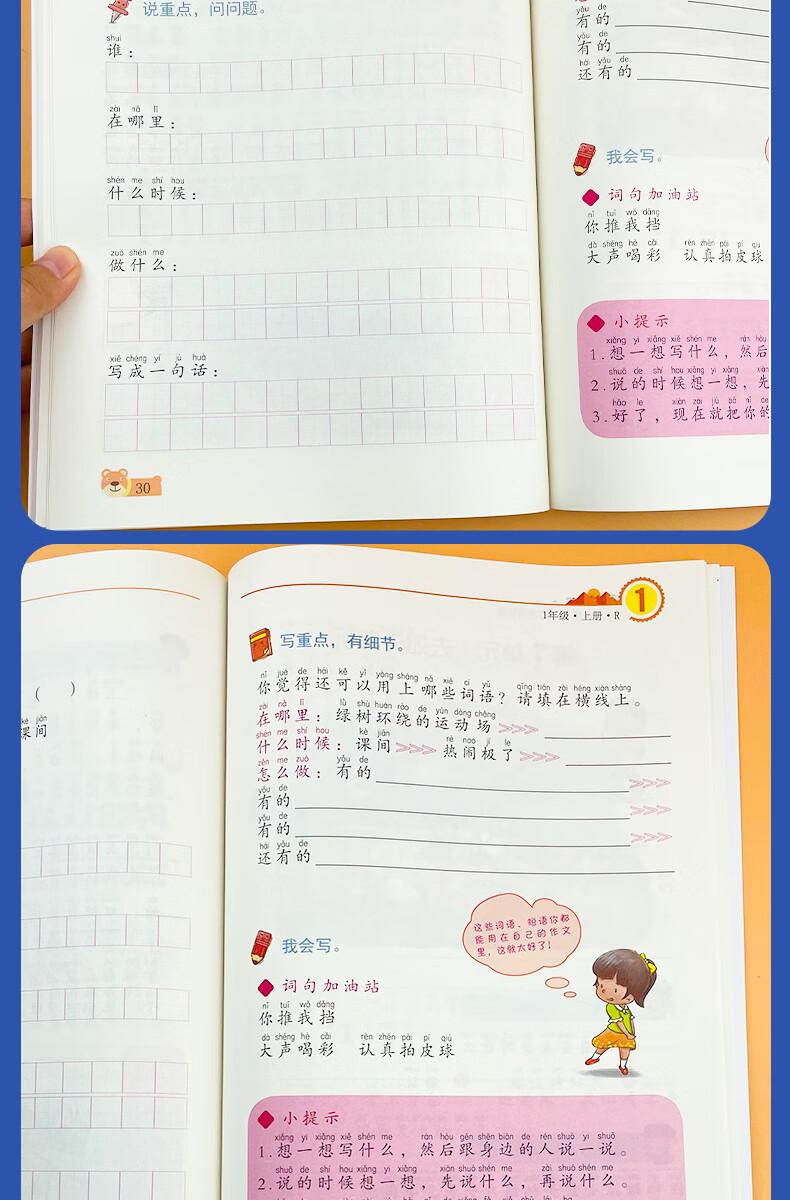 说重点，问问题。
shuí
谁：
zài nǎ lǐ
在哪里：
shén me shí hou
什么时候：
zuò shén me
做什么：
xiě chéng yí jù huà
写成一句话：
30
yǒu de
有的
yǒu de
有的
hái yǒu de
还有的
我会写。
词句加油站
nǐ tuī wǒ dǎng
你推我挡
dà shēng hè cǎi rèn zhēn pāi pí qiú
大声喝彩 认真拍皮球
小提示
xiǎng yi xiǎng xiě shén me rán hòu
1.想一想写什么，然后
shuō de shí hou xiǎng yi xiǎng xiān
2.说的时候想一想，先
hǎo le xiàn zài jiù bǎ nǐ de
3.好了，现在就把你的
( )
kè jiān
课间
1年级·上册·R
1
写重点，有细节。
nǐ jué de hái kě yǐ yòng shàng nǎ xiē cí yǔ qǐng tián zài héng xiàn shàng
你觉得还可以用上哪些词语？请填在横线上。
zài nǎ lǐ lǜ shù huán rào de yùn dòng chǎng
在哪里：绿树环绕的运动场
shén me shí hou kè jiān rè nao jí le
什么时候：课间 热闹极了
zěn me zuò yǒu de
怎么做：有的
yǒu de
有的
yǒu de
有的
hái yǒu de
还有的
这些词语、短语你都
能用在自己的作文
里，这就太好了！
我会写。
词句加油站
nǐ tuī wǒ dǎng
你推我挡
dà shēng hè cǎi rèn zhēn pāi pí qiú
大声喝彩 认真拍皮球
小提示
xiǎng yi xiǎng xiě shén me rán hòu gēn shēn biān de rén shuō yi shuō
1.想一想写什么，然后跟身边的人说一说。
shuō de shí hou xiǎng yi xiǎng xiān shuō shén me zài shuō shén me
2.说的时候想一想，先说什么，再说什么。